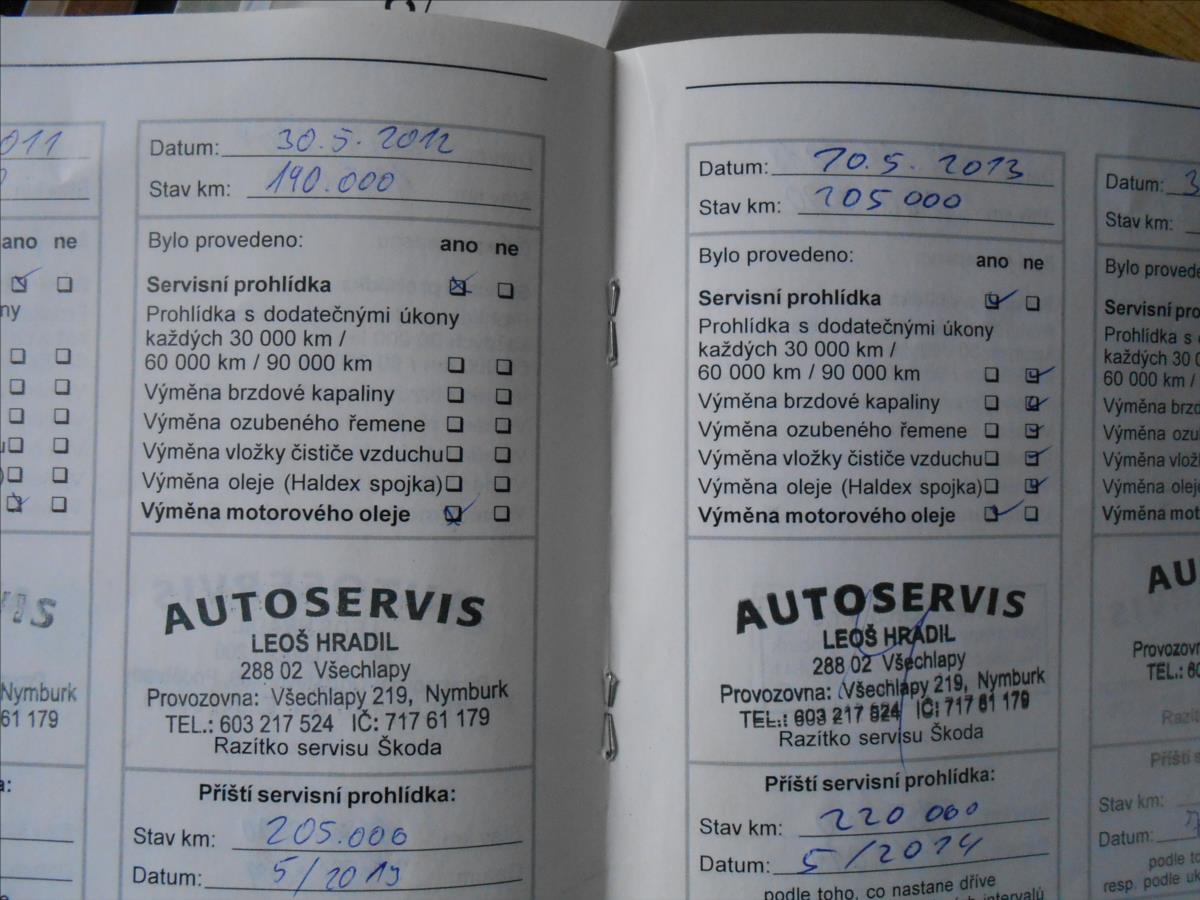 2011
ano ne
Nymburk
61 179
Datum: 30.5.2012
Stav km: 190.000
Bylo provedeno: ano ne
Servisní prohlídka
Prohlídka s dodatečnými úkony
každých 30 000 km /
60 000 km / 90 000 km
Výměna brzdové kapaliny
Výměna ozubeného řemene
Výměna vložky čističe vzduchu
Výměna oleje (Haldex spojka)
Výměna motorového oleje
AUTOSERVIS
LEOŠ HRADIL
288 02 Všechlapy
Provozovna: Všechlapy 219, Nymburk
TEL.: 603 217 524 IČ: 717 61 179
Razítko servisu Škoda
Příští servisní prohlídka:
Stav km: 205.000
Datum: 5/2013
Datum: 20.5.2013
Stav km: 205 000
Bylo provedeno: ano ne
Servisní prohlídka
Prohlídka s dodatečnými úkony
každých 30 000 km /
60 000 km / 90 000 km
Výměna brzdové kapaliny
Výměna ozubeného řemene
Výměna vložky čističe vzduchu
Výměna oleje (Haldex spojka)
Výměna motorového oleje
AUTOSERVIS
LEOŠ HRADIL
288 02 Všechlapy
Provozovna: Všechlapy 219, Nymburk
TEL.: 603 217 524 IČ: 717 61 179
Razítko servisu Škoda
Příští servisní prohlídka:
Stav km: 220 000
Datum: 5/2014
podle toho, co nastane dříve
intervalů
Datum: 3
Stav km:
Bylo provede
Servisní pro
Prohlídka s
každých 30 0
60 000 km /
Výměna brzdo
Výměna ozu
Výměna vlož
Výměna oleje
Výměna mot
AU
Provozovn
TEL.: 60
Razít
Příští s
Stav km:
Datum:
podle to
resp. podle uk